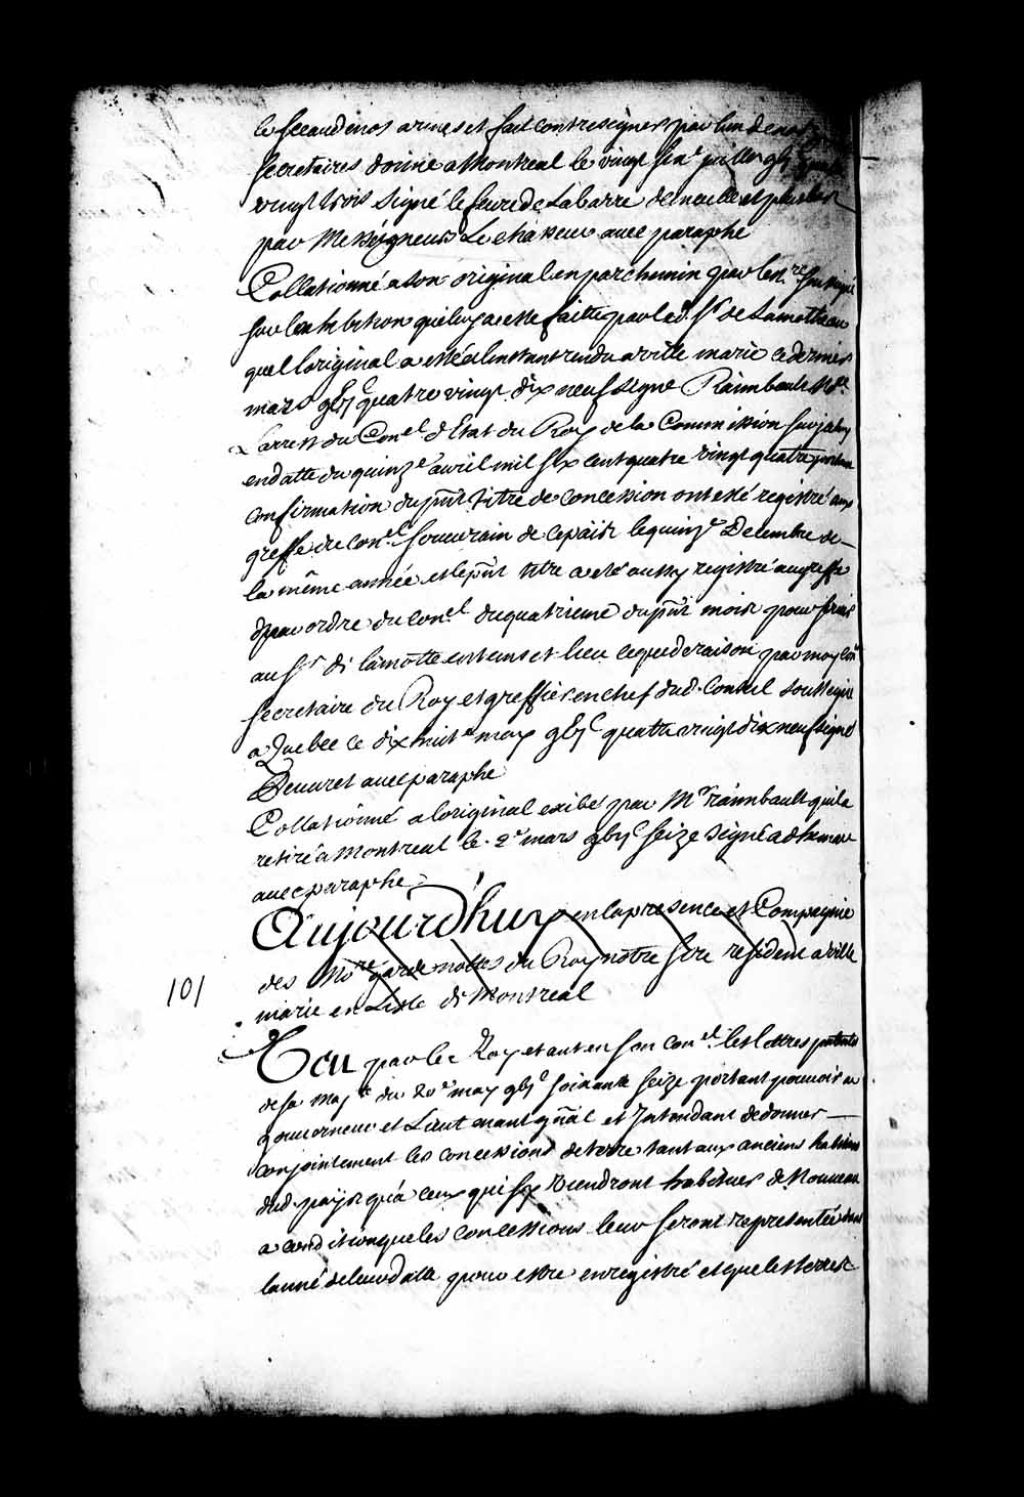 le sceau de nos armes et fait contresigner par l'un de nos
secretaires donné a Montreal le vingt juillet gbjc quatre
vingt trois signé le febure de Labarre demeulle et plus bas
par Messeigneurs Le chasseur avec paraphe
Collationné a son original en parchemin par le nre soussigné
sur lexhibition quiluy a esté faitte par led. Sr de Lamotte au
quel loriginal a esté a linstant rendu a ville marie ce dernier
mars gbjc quatre vingt dix neuf signé Raimbault Nore
Larrest du Conel d'Etat du Roy de la Commission
en datte du quinze avril mil six cent quatre vingt quatre portant
confirmation du pnt titre de concession ont esté registré aux
greffe du conel souverain de ce païs le quinze Decembre de
la même année et le pnt titre a esté aussy registré au greffe
par ordre du conel du quatrieme du pnt mois pour servir
au Sr de lamotte en tems et lieu ce que de raison par moy conr
secretaire du Roy et greffier en chef dud. Conseil soussigné
a Quebec ce dix huite may gbjc quatre vingt dix neuf signé
Peuvret avec paraphe
Collationné a loriginal exibé par Mr raimbault qui la
retiré a Montreal le 2e mars gbjc seize signé adhemar
avec paraphe
Aujourd'huy en la presence et Compagnie
des Nores garde nottes du Roy notre sire resident a ville
marie en Lisle de Montreal
101
Veu par le Roy etant en son conel les lettres patentes
de sa Majté du 20e may gbjc soixante seize portant pouvoir au
gouverneur et Lieutenant gñal et Intendant de donner
conjointement les concessions de terre tant aux anciens habitans
dud. païs qu'a ceux qui sy viendront habituer de Nouveau
a condition que les concessions leur seront representée dans
lanné de leur datte pour estre enregistré et que les terres